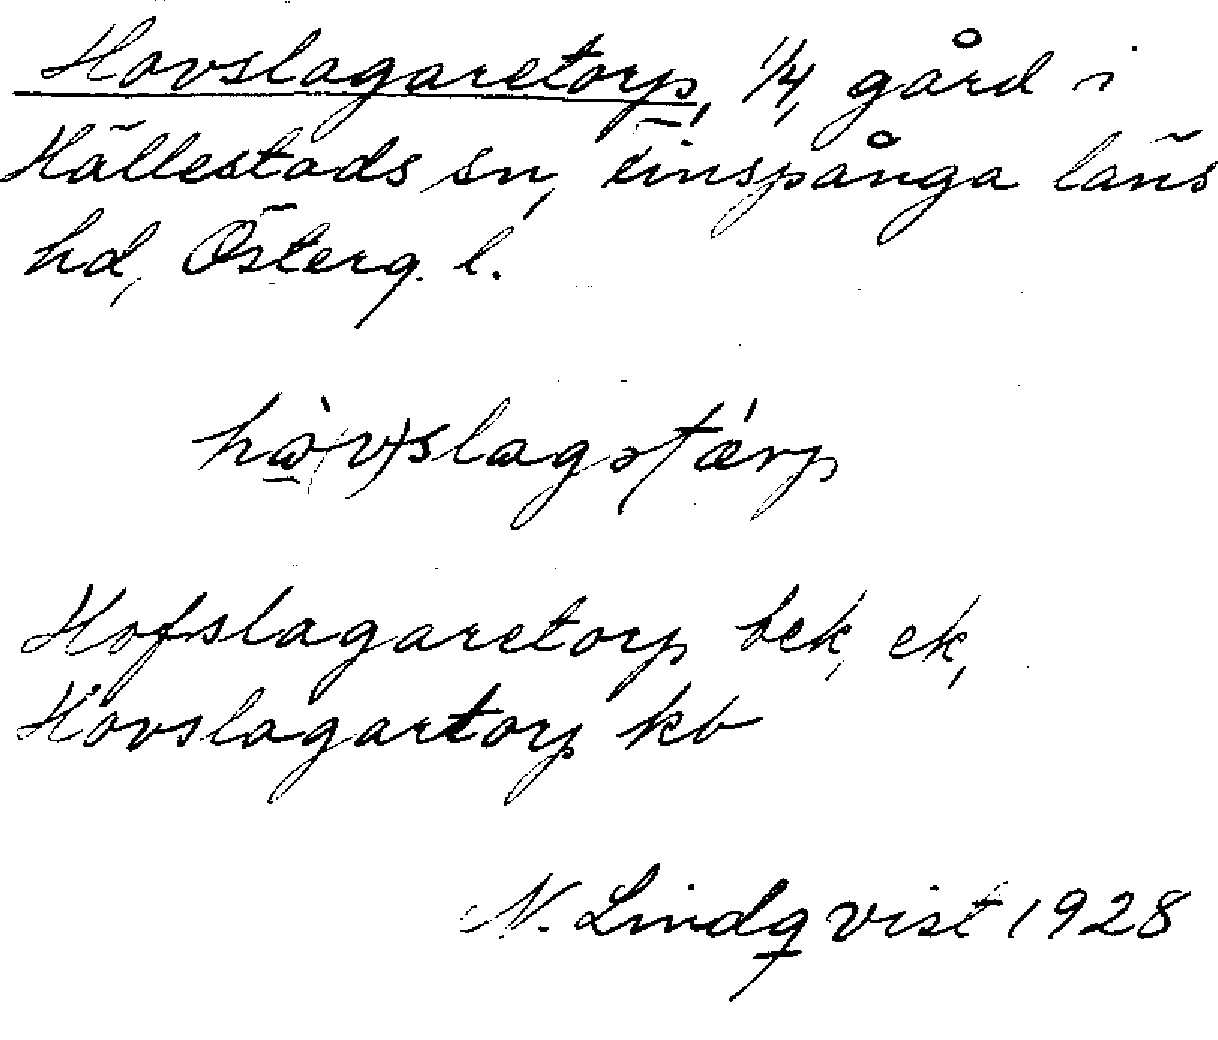 Hovslagaretorp, 1/4, gård i
Hällestads sn, Finspånga läns
hd, Österg. l.
hὼ(v)slagətǽrp
Hofslagaretorp bek, ek,
Hovslagartorp kb
N. Lindqvist 1928